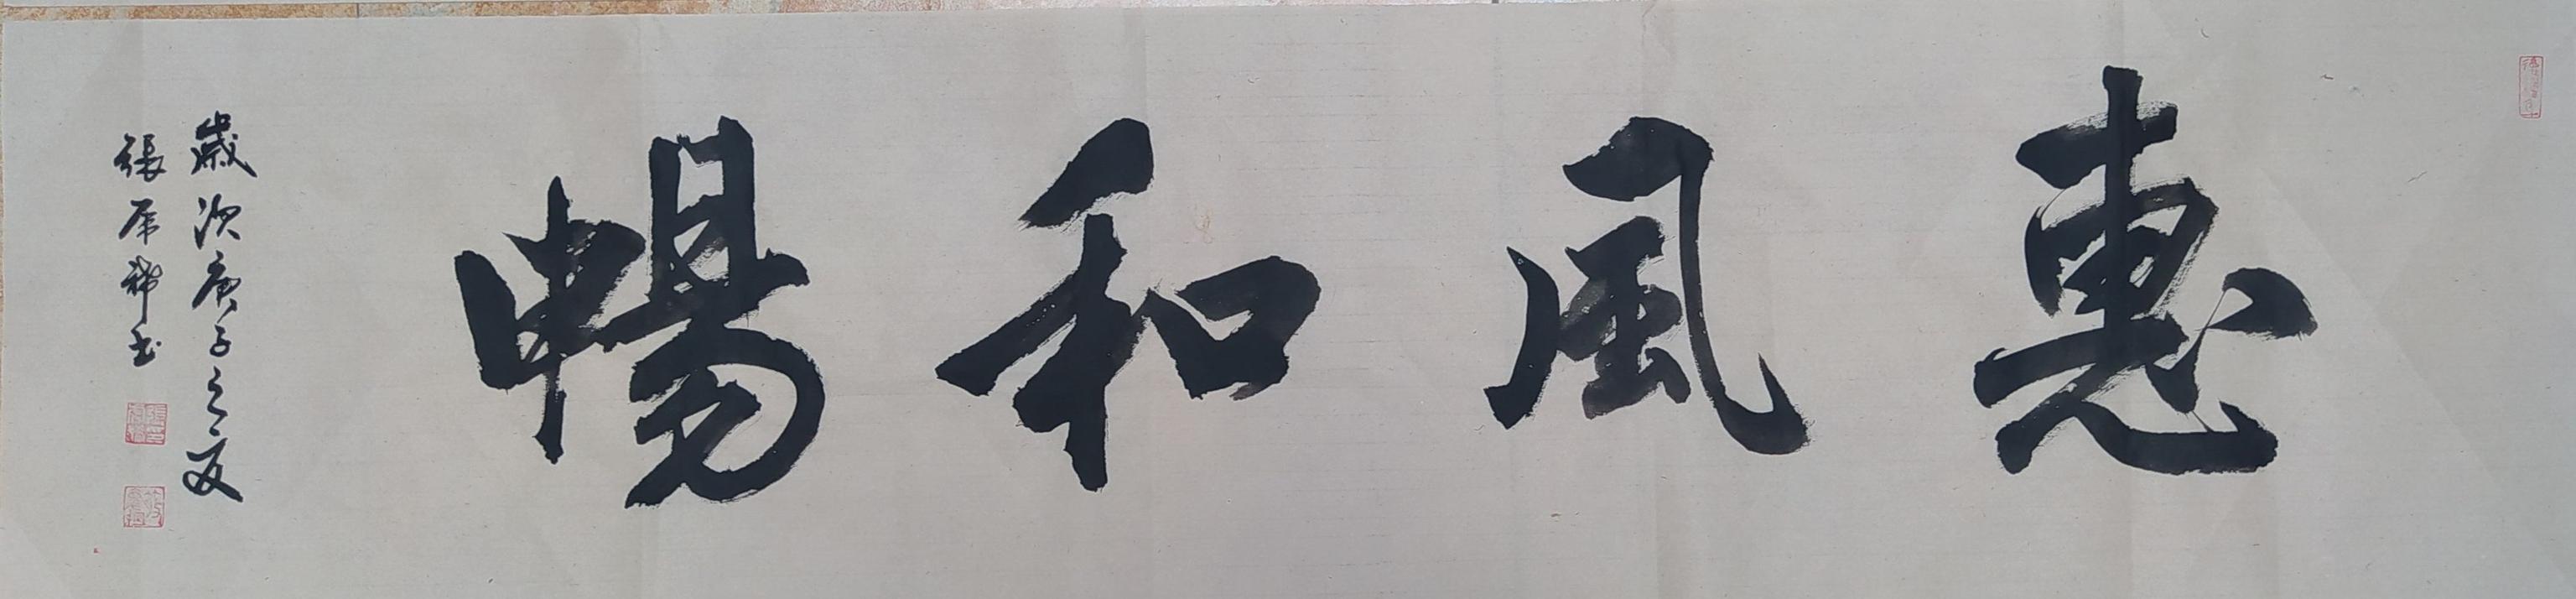 惠風和暢
歲次庚子之夏
張 書